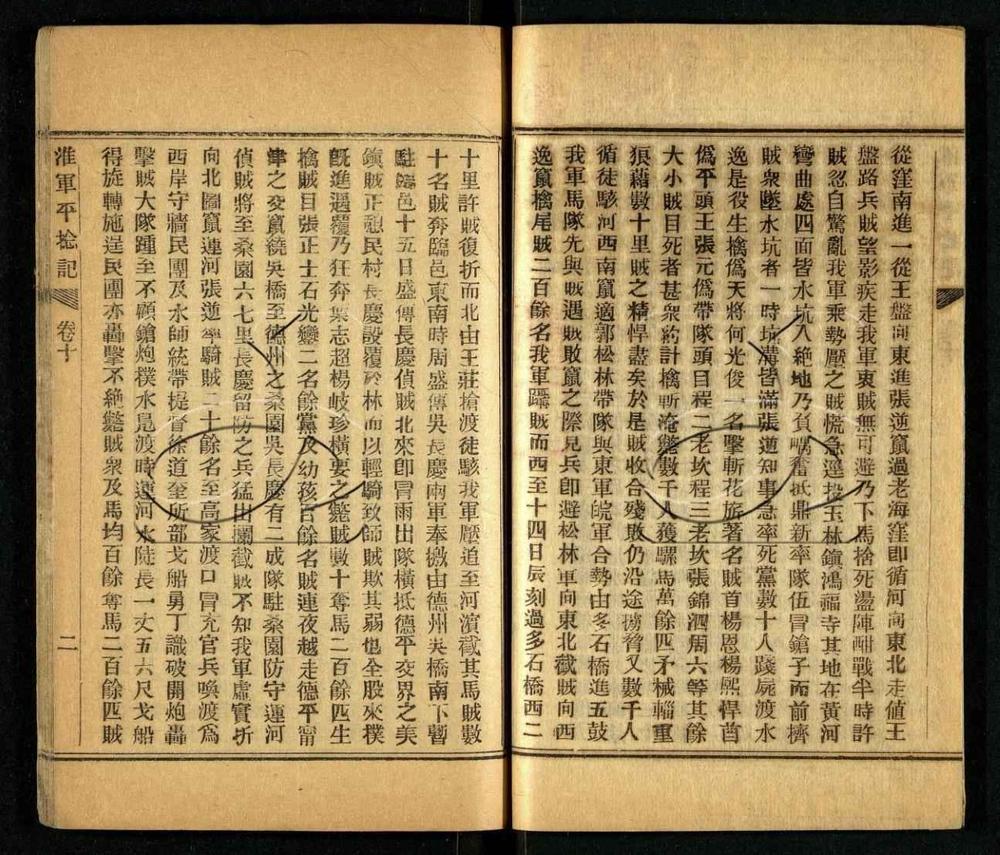 從窪南進一從王盤向東進張逆竄過老海窪即循河向東北走値王
盤路兵賊望影疾走我軍衷賊無可避乃下馬捨死盪陣酣戰半時許
賊忽自驚亂我軍乘勢壓之賊慌急逕投玉林鎭鴻福寺其地在黃河
彎曲處四面皆水坑入絶地乃負嵎奮抵鼎新率隊伍冒鎗子而前擠
賊衆墜水坑者一時坑溝皆滿張逆知事急率死黨數十人踐屍渡水
逸是役生擒僞天將何光俊一名擊斬花旂著名賊首楊恩楊熙悍酋
僞平頭王張元僞帶隊頭目程二老坎程三老坎張錦泗周六等其餘
大小賊目死者甚衆約計擒斬淹斃數千人獲騾馬萬餘匹矛械輜重
狼藉數十里賊之精悍盡矣於是賊收合殘敗仍沿途擄脅又數千人
循徒駭河西南竄適郭松林帶隊與東軍皖軍合勢由冬石橋進五鼓
我軍馬隊先與賊遇賊敗竄之際見兵卽避松林軍向東北截賊向西
逸竄擒尾賊二百餘名我軍躡賊而西至十四日辰刻過多石橋西二
十里許賊復折而北由王莊搶渡徒駭我軍壓追至河濱截其馬賊數
十名賊奔臨邑東南時周盛傳吳長慶兩軍奉檄由德州夾橋南下暫
駐臨邑十五日盛傳長慶偵賊北來卽冒雨出隊橫抵德平交界之美
鎭賊正憩民村長慶設覆於林而以輕騎致師賊欺其弱也全股來撲
旣進遇覆乃狂奔葉志超楊岐珍橫要之斃賊數十奪馬二百餘匹生
擒賊目張正士石光變二名餘黨及幼孩百餘名賊連夜越走德平甯
津之交竄繞吳橋至德州之桑園吳長慶有二成隊駐桑園防守運河
偵賊將至桑園六七里長慶留防之兵猛出攔截賊不知我軍虛實折
向北圖竄連河張逆率騎賊二十餘名至高家渡口冒充官兵喚渡爲
西岸守牆民團及水師統帶提督徐道奎所部戈船勇丁識破開炮轟
擊賊大隊踵至不顧鎗炮撲水鳧渡時運河水陡長一丈五六尺戈船
得旋轉施逞民團亦轟擊不絶斃賊衆及馬均百餘奪馬二百餘匹賊
淮軍平捻記 卷十 二